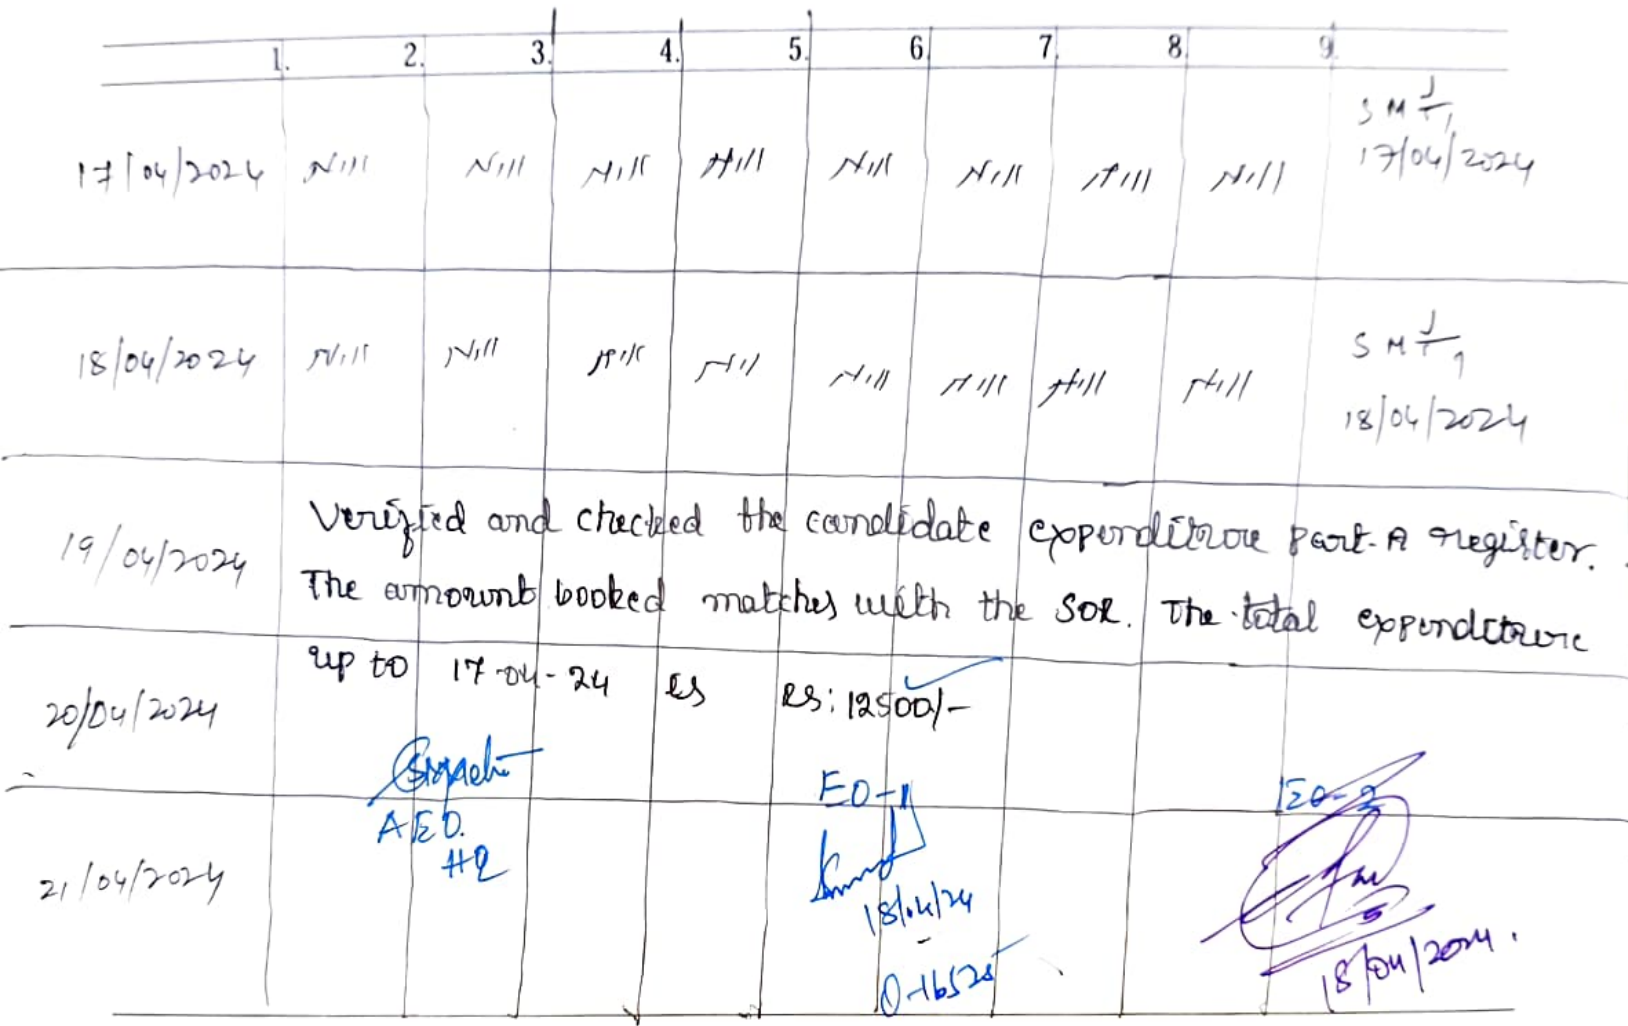 1. 2. 3. 4. 5. 6. 7. 8. 9.
17/04/2024 Nill Nill Nill Nill Nill Nill Nill Nill
17/04/2024
18/04/2024 Nill Nill Nill Nill Nill Nill Nill Nill
18/04/2024
19/04/2024
Verified and checked the candidate expenditure part-A register.
The amount booked matches with the SOR. The total expenditure
up to 17-04-24 is RS: 12500/-
20/04/2024
EO-1 EO-2
AEO.
HQ
21/04/2024
18/04/24
18/04/2024.